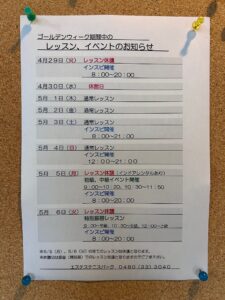 ゴールデンウィーク期間中の
レッスン、イベントのお知らせ
4月29日（火） レッスン休講
インスピ開催
8：00～20：00
4月30日（水） 休館日
5月 1日（木） 通常レッスン
5月 2日（金） 通常レッスン
5月 3日（土） 通常レッスン
インスピ開催
18：00～20：00
5月 4日（日） 通常レッスン
インスピ開催
12：00～21：00
5月 5日（月） レッスン休講（インドアレンタルあり）
初級、中級イベント開催
9：00～10：20、10：30～11：50
インスピ開催
8：00～20：00
5月 6日（火） レッスン休講
特別振替レッスン
インスピ開催
8：00～20：00
エステテニスパーク 0480（33）3040